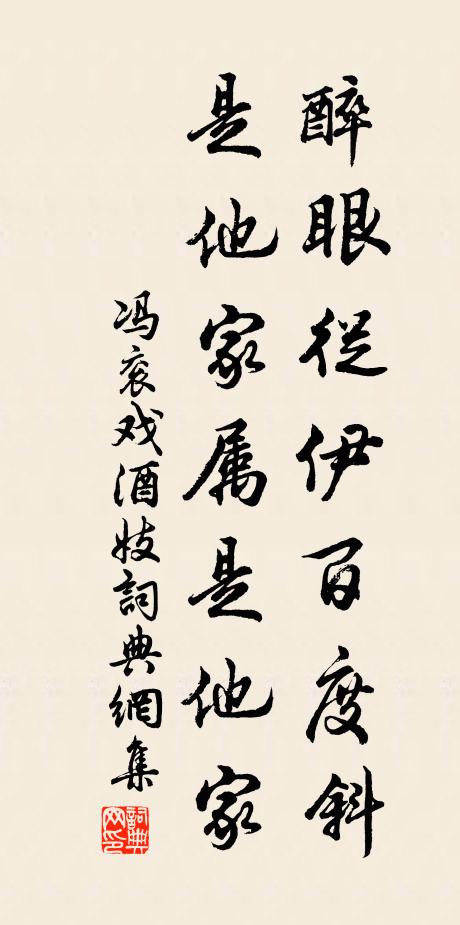 醉眼從伊百度斜
是他家属是他家
冯衮戏酒妓詞典網集
詞典網印